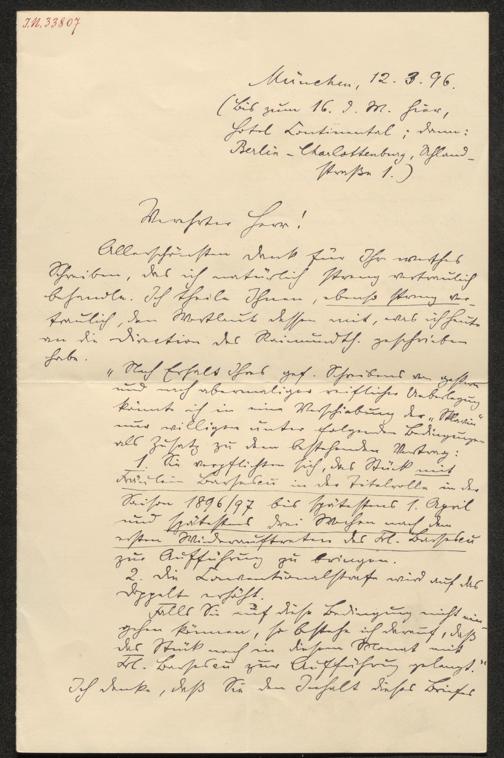 J.N. 33807
München, 12. 3. 96.
(bis zum 16. d. M. hier,
Hotel Continental; dann:
Berlin-Charlottenburg, Uhland-
straße 1.)
Verehrter Herr!
Allerschönsten Dank für Ihr werthes
Schreiben, das ich natürlich streng vertraulich
behandle. Ich theile Ihnen, ebenso streng ver-
traulich, den Wortlaut dessen mit, was ich heute
an die Direction des Raimundth. geschrieben
habe.
"Nach Erhalt Ihres gef. Schreibens von gestern
und nach abermaliger reiflicher Ueberlegung
könnte ich in eine Verschiebung der
nur willigen unter folgenden Bedingungen
als Zusatz zu dem bestehenden Vertrag:
1. Sie verpflichten sich, das Stück mit
Fräulein Barsescu in der Titelrolle in der
Saison 1896/97 bis spätestens 1. April
und spätestens drei Wochen nach dem
ersten Wiederauftreten des Frl. Barsescu
zur Aufführung zu bringen.
2. Die Conventionalstrafe wird auf das
Doppelte erhöht.
Falls Sie auf diese Bedingung nicht ein-
gehen können, so bestehe ich darauf, daß
das Stück noch in diesem Monat mit
Frl. Barsescu zur Aufführung gelangt."
Ich denke, daß Sie den Inhalt dieses Briefes